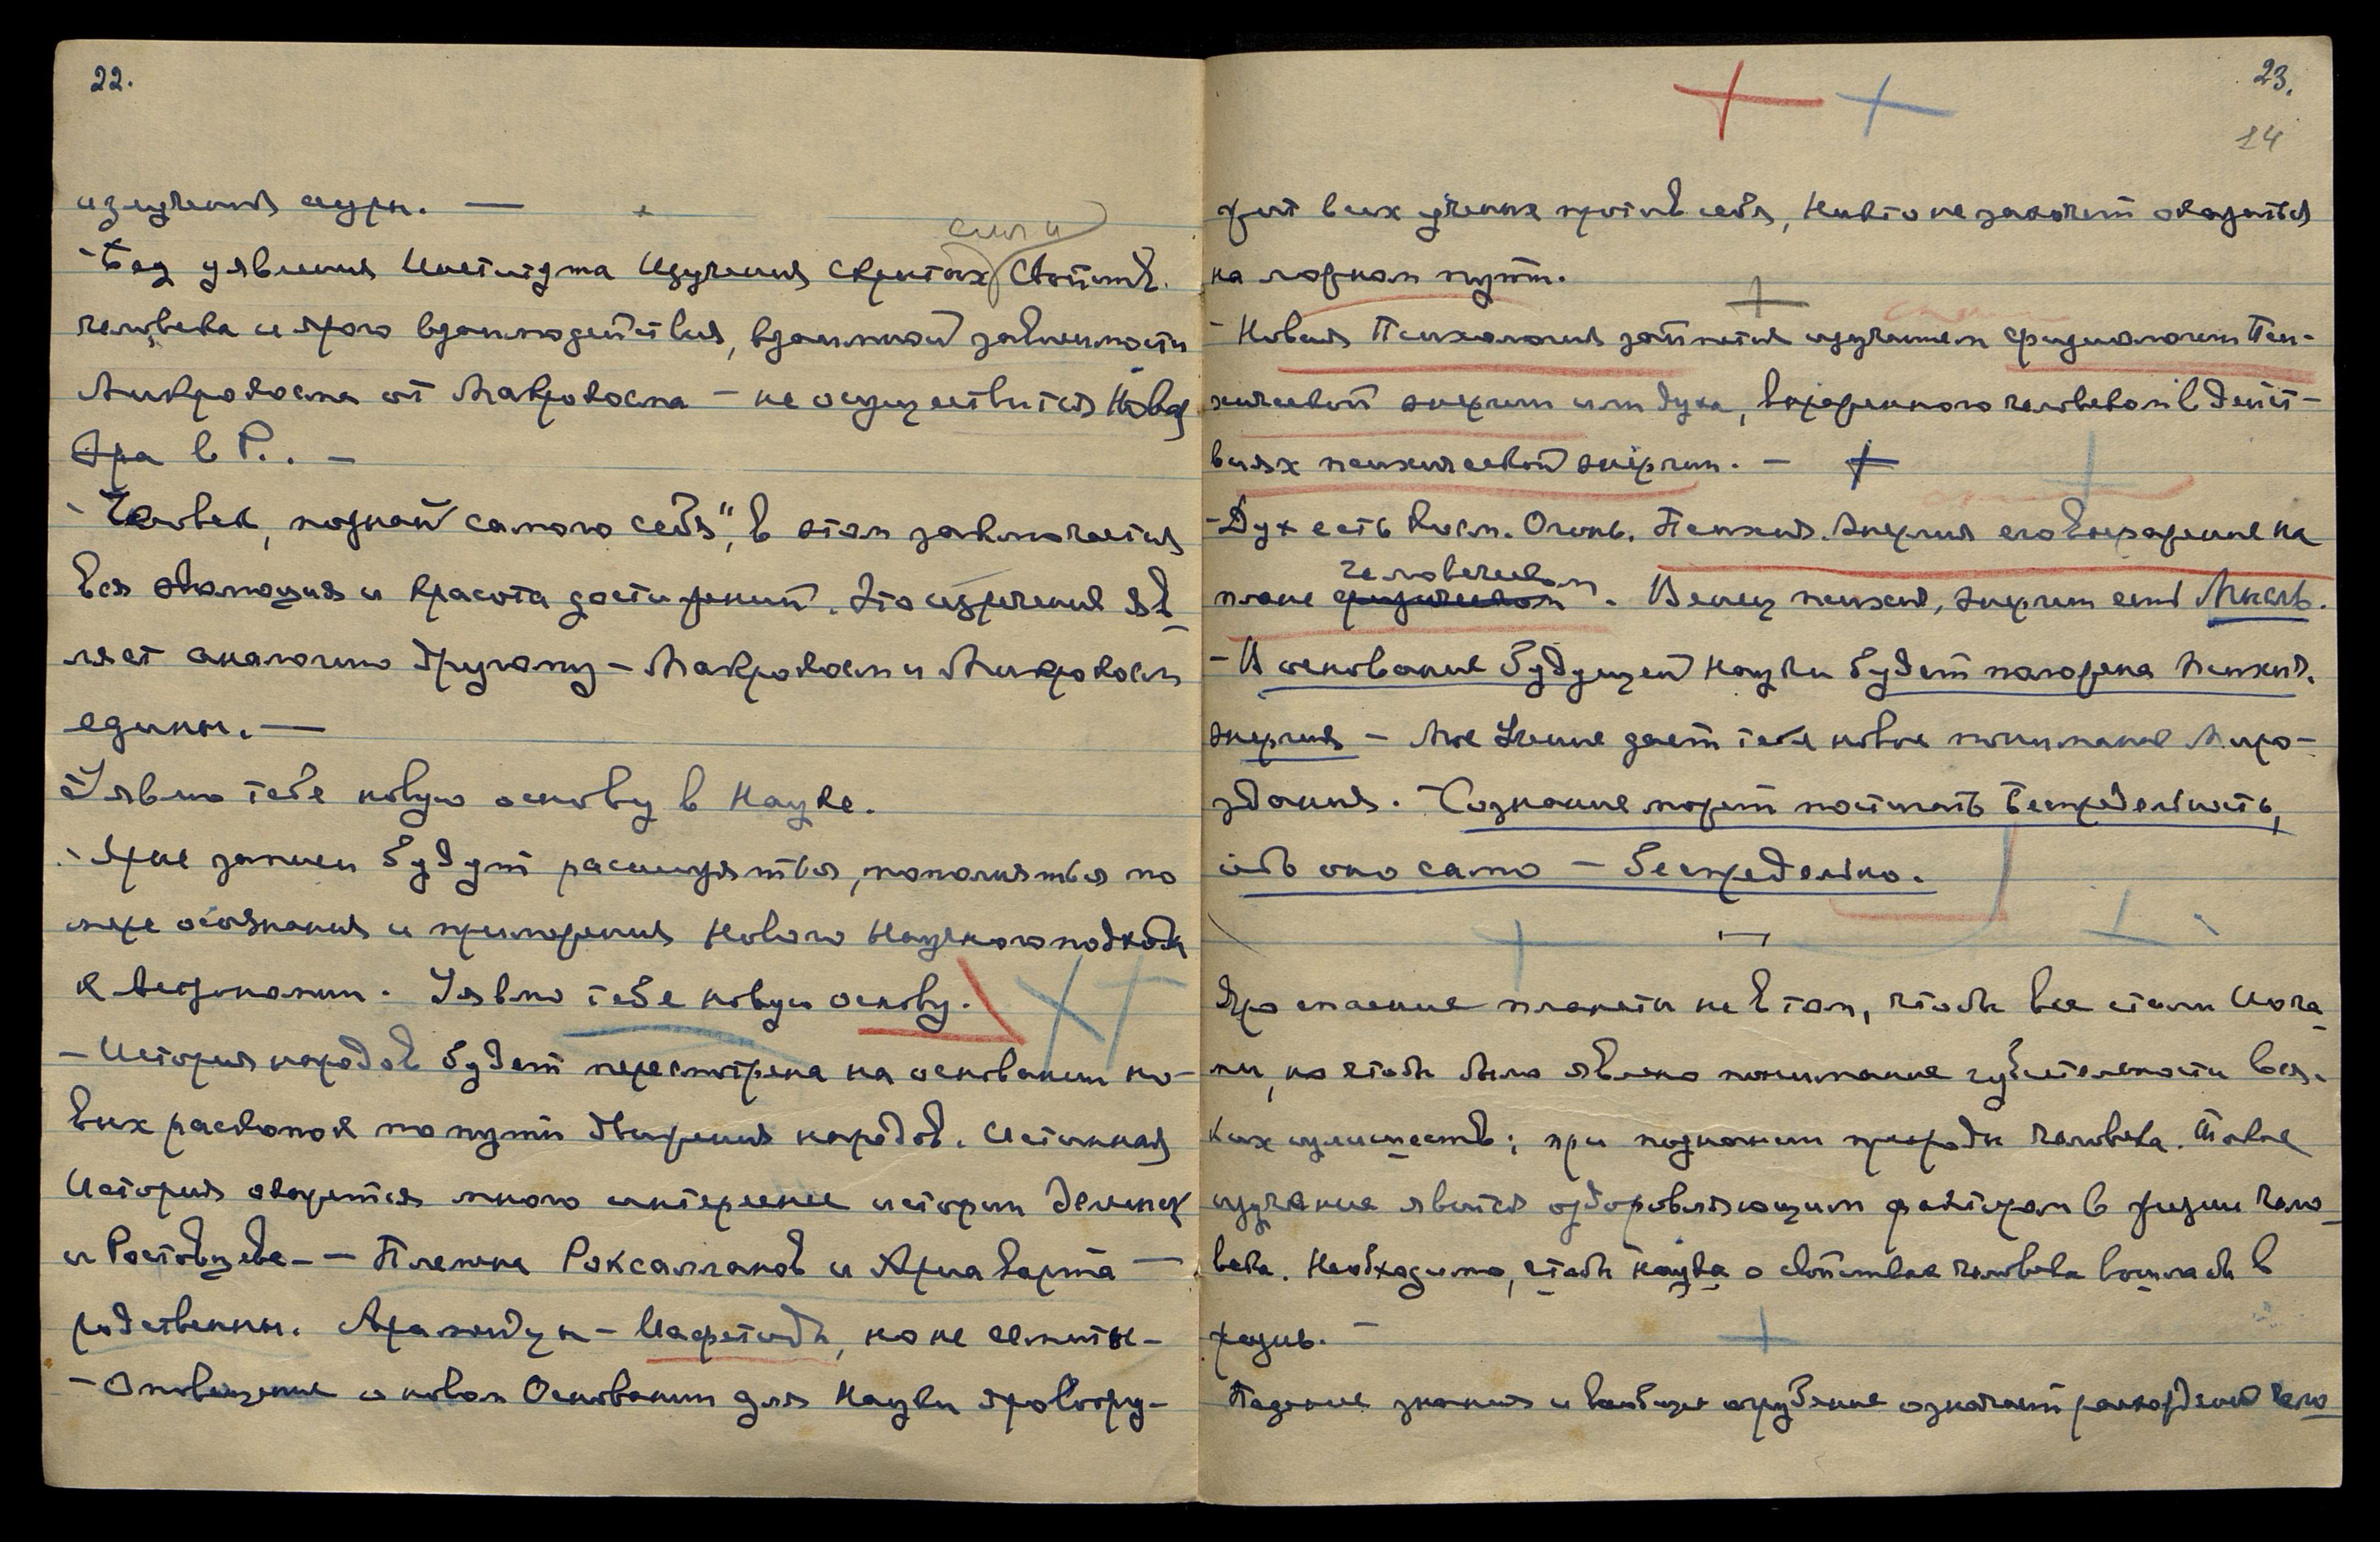 22.
излучения ауры. —
сил и
- Без уявления Института Изучения скрытых Свойств
человека и ярого взаимодействия, взаимной зависимости
Микрокосма от Макрокосма — не осуществится Новая
Эра в Р.. —
- "Человек, познай самого себя", в этом заключается
вся эволюция и красота достижений. Это изречение яв-
ляет аналогию другому — Макрокосм и Микрокосм
едины. —
Уявлю тебе новую основу в Науке.
- Ярые записи будут расширяться, пополняться по
мере осознания и приложения Нового Научного подхода
к Медицине. Уявлю тебе новую основу.
— История народов будет пересмотрена на основании но-
вых раскопок по пути движения народов. Истинная
История окажется много интереснее истории
и Ростовцева — — Племена Роксалланов и Ариаварта —
родственны. Арамейцы — Иафетиды, но не семиты —
— Оповещение о новом Основании для Науки яро воору-
23.
24
жит всех ученых против себя, Никто не захочет оказаться
на ложном пути.
- Новая Психология займется изучением физиологии Пси-
хической энергии или духа, выраженного человеком в дейст-
виях психической энергии. —
- Дух есть Косм. Огонь. Психич. Энергия его выражение на
человеческом
плане физическом. Венец психич. энергии есть Мысль.
- В основание будущей науки будет положена Психич.
энергия — Мое Учение дает тебе новое понимание Миро-
здания. - Сознание может постигать Беспредельность,
ибо оно само — беспредельно.
Яро спасение планеты не в том, чтобы все стали Йога-
ми, но чтобы было явлено понимание губительности вся-
ких излишеств; при познании природы человека. Такое
изучение явится оздоровляющим фактором в жизни чело-
века. Необходимо, чтобы наука о свойствах человека вошла бы в
жизнь. —
Падение знания и вообще огрубение означает вырождение чело-